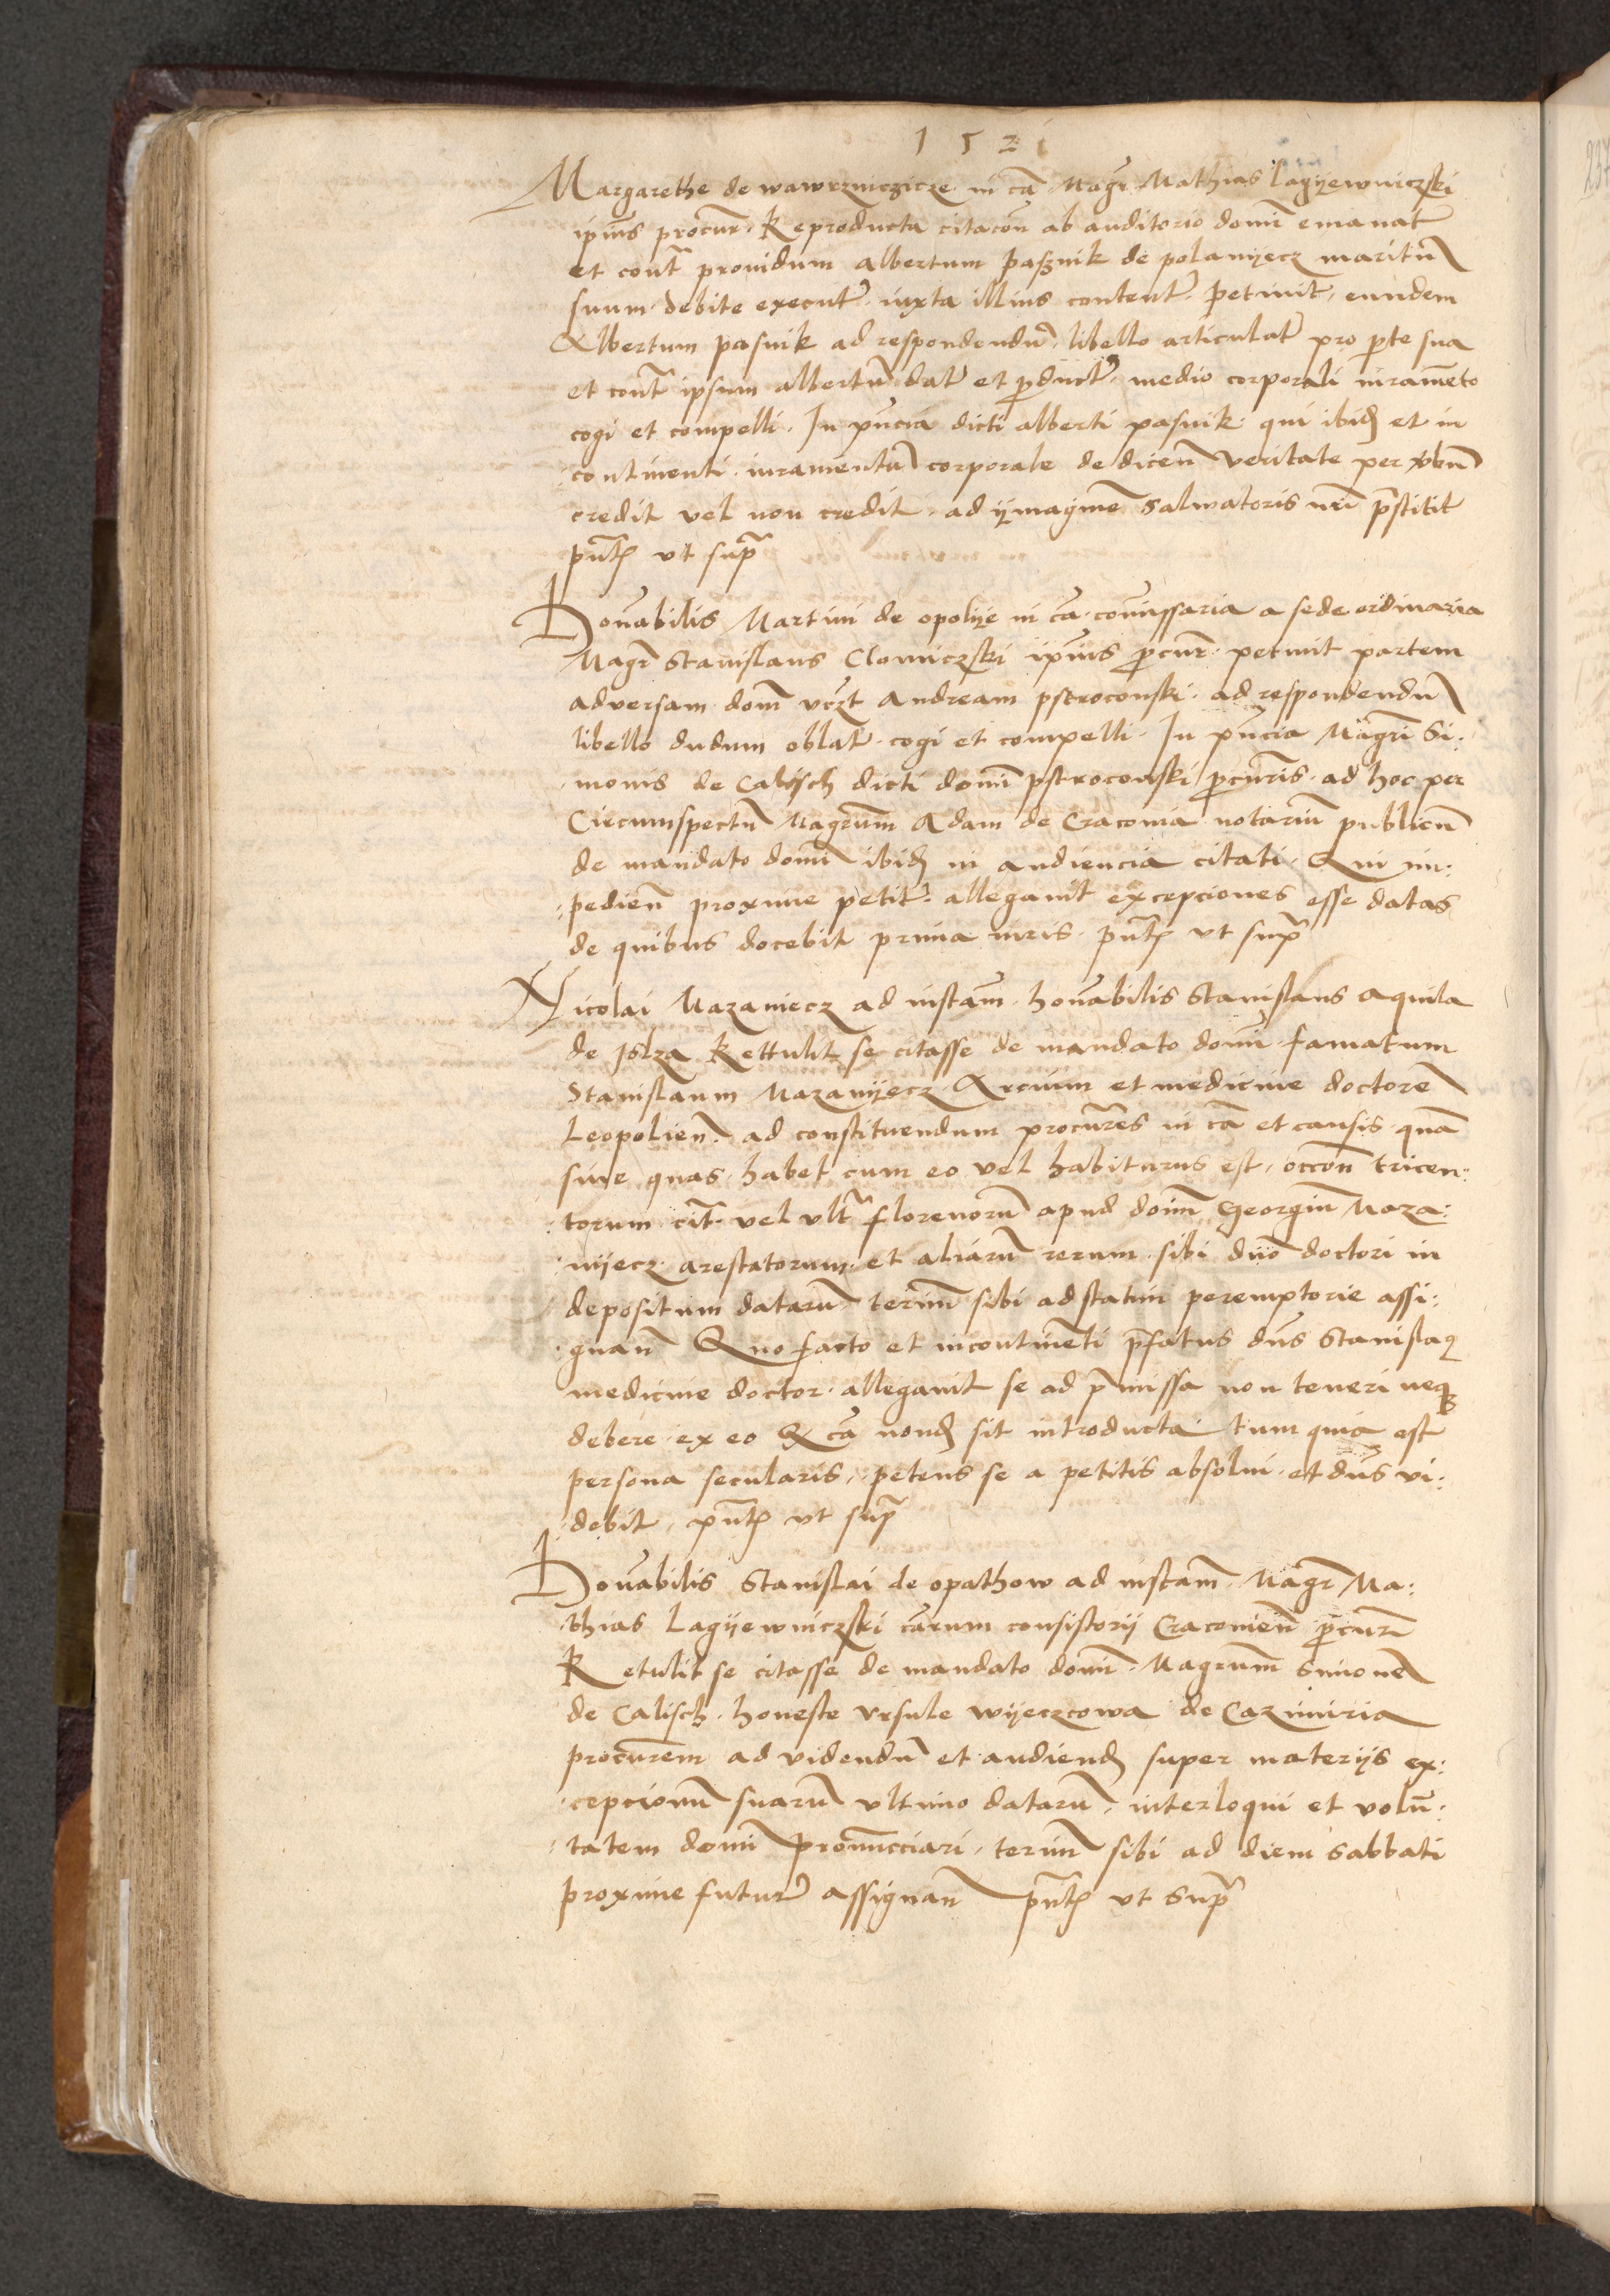 1521
Margarethe de wawrzniczicze in cā Magr̄ Mathias lagyewniczski
ipius procur̄ Reproducta citacōn ab auditorio domī emanat̄
et cont̄ providum albertum paßnik de polanyecz maritū
suum debite executr̄ iuxta illius content̄ petiuit eundem
Albertum pasnik ad respondendū libello articulat̄ pro p̄te sua
et cont̄ ipsum albertū dat̄ et p̄duct̄ medio corporali iuram̄eto
cogi et compelli. In p̄ncia dicti alberti pasnik qui ibid̄ et in
continenti iuramentū corporale de dicen̄ veritate per vbū
credit vel non credit ad ymaginē Salvatoris nr̄i p̄stitit
pn̄t̄ vt sup̄
Honābilis Martini de opolye in cā com̄issaria a sede ordinaria
Magr̄ Stanislaus Clomiczski ipius p̄cur̄ petiuit partem
adversam dom̄ vczt Andream pstroconski ad respondendū
libello dudum oblat̄ cogi et compelli. In p̄ncia Magr̄i Si:
monis de Calisch dicti domī pstroconski p̄curis ad hoc per
Circumspectū Magrum̄ Adam de Cracovia notariū publicū
de mandato domī ibid̄ in audiencia citati. Qui im:
pedien̄ proxime petit̄ allegauit excepciones esse datas
de quibus docebit prima iuris pn̄t̄ vt sup̄
Nicolai Mazaniecz ad instam̄ honābilis Stanislaus aquila
de Jslza Rettulit se citasse de mandato domī famatum
Stanislaum Mazanyecz Arcium et medicine doctorē
Leopolien̄ ad constituendum procur̄es in cā et causis quā
siue quas habet cum eo vel habiturus est occōn tricen:
torum cit̄ vel vlt̄ florenorū apud domī Georgiū Maza:
nyecz arestatorum et aliarū rerum sibi dn̄o doctori in
depositum datarū termī sibi ad statim peremptorie assi:
gnan̄ Quo facto et incontinēti p̄fatus dn̄s Stanislaꝯ
medicine doctor allegauit se ad p̄missa non teneri neqꝫ
debere ex eo Q cā nond̄ sit introducta tum quia est
persona secularis petens se a petitis absolui et dn̄s vi:
debit pn̄t̄ vt sup̄
Honābilis Stanislai de opathow ad instam̄ Magr̄ Ma:
thias Lagyewniczski cārum consistorij Cracovien̄ p̄cur̄
Retulit se citasse de mandato domī Magrum̄ Simonē
de Calisch honeste Vrsule wyeczcowa de Cazimiria
procur̄em ad videndū et audiend̄ super materijs ex:
cepcionū suarū vltimo datarū interloqui et volū:
tatem domī pronūcciari termī sibi ad diem sabbati
proxime futur̄ assignan̄ pn̄t̄ vt sup̄
237